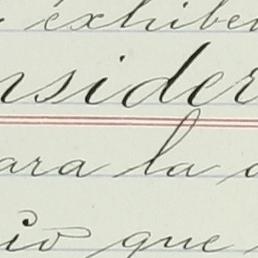 exhiben
nsider
ara la
io que